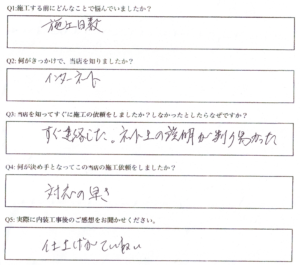 Q1:施工する前にどんなことで悩んでいましたか？
施工日数
Q2: 何がきっかけで、当店を知りましたか？
インターネット
Q3: 当店を知ってすぐに施工の依頼をしましたか？しなかったとしたらなぜですか？
すぐ連絡した。ネット上の説明が判り易かった
Q4: 何が決め手となってこの当店の施工依頼をしましたか？
対応の早さ
Q5: 実際に内装工事後のご感想をお聞かせください。
仕上げがていねい